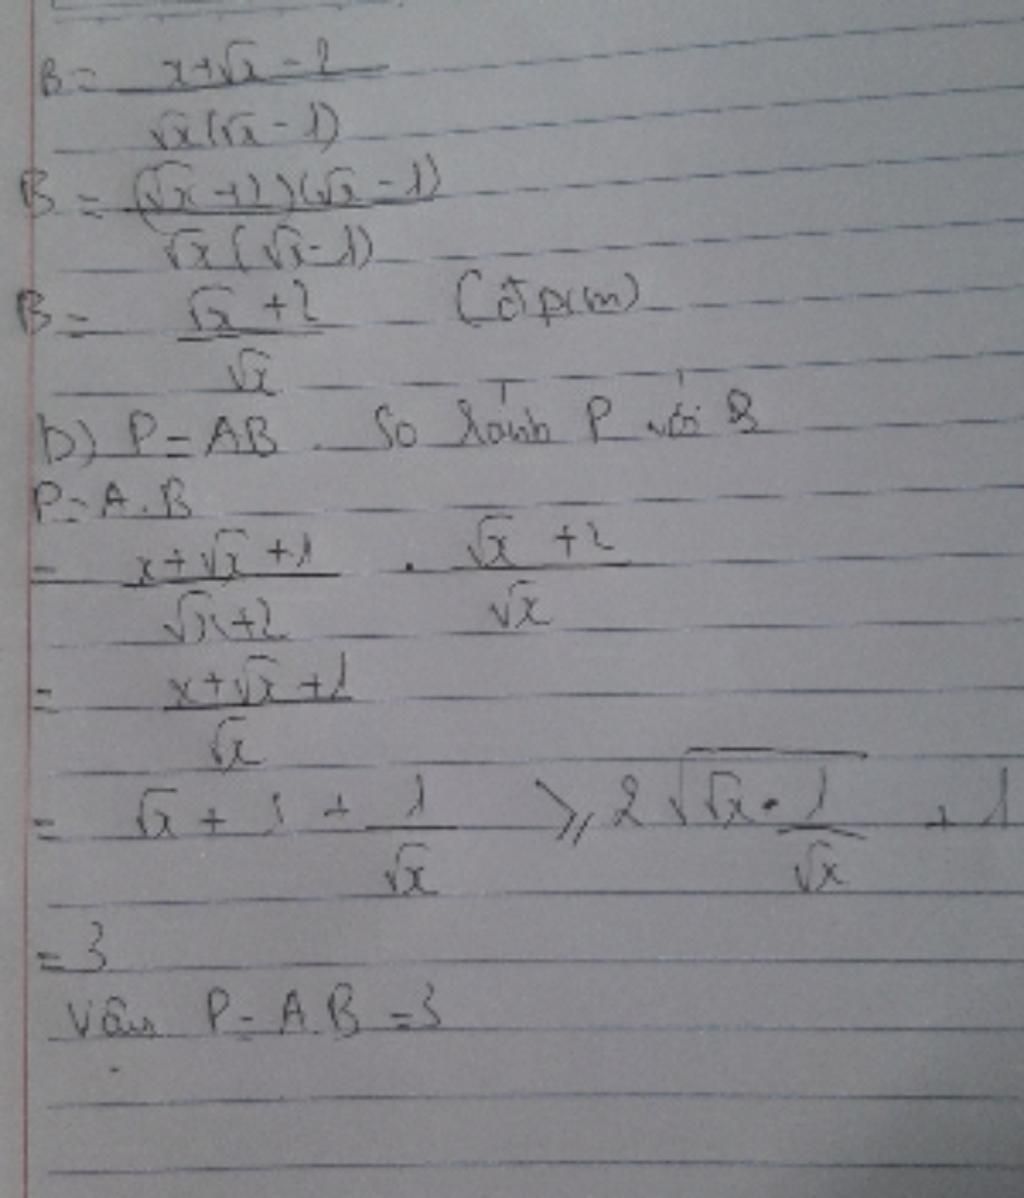 B = (x+√x - 2)/(√x(√x - 1))
B = ((√x +2)(√x - 1))/(√x(√x-1))
B = (√x +2)/√x (đpcm)
b) P = AB. So sánh P với 3
P = A.B
= (x+√x +1)/(√x+2) . (√x +2)/√x
= (x+√x +1)/√x
= √x + 1 + 1/√x ⩾ 2√(√x . 1/√x) + 1
= 3
Vậy P = A.B = 3